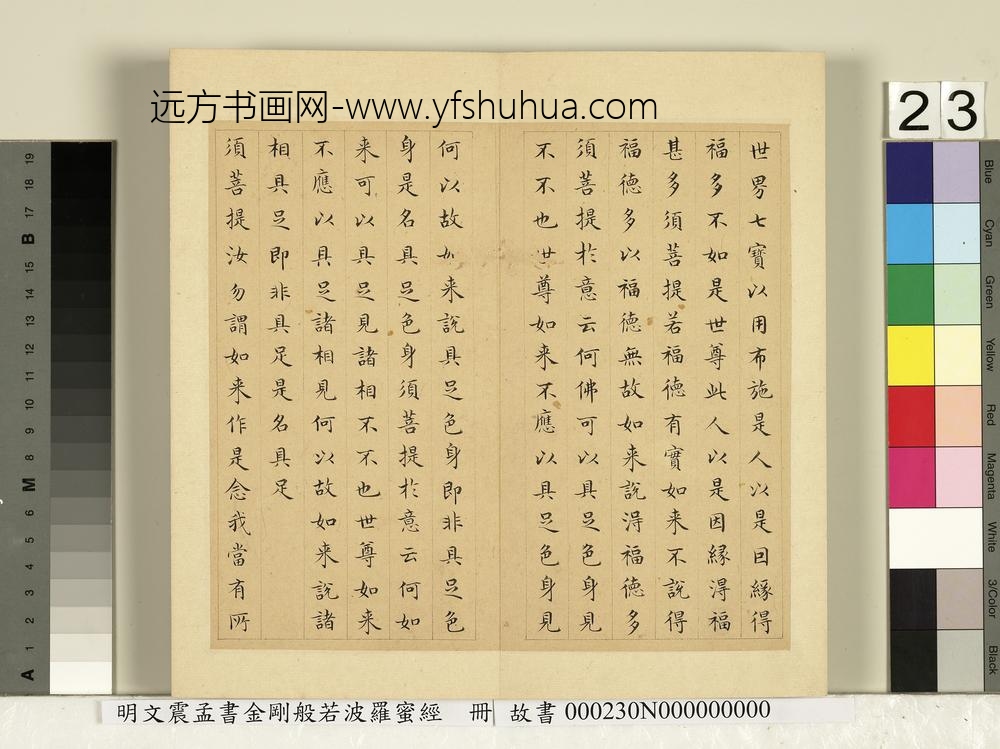 远方书画网-www.yfshuhua.com
23
世界七寶以用布施是人以是因緣得
福多不如是世尊此人以是因緣得福
甚多須菩提若福德有實如来不說得
福德多以福德無故如来說得福德多
須菩提於意云何佛可以具足色身見
不不也世尊如来不應以具足色身見
何以故如来說具足色身即非具足色
身是名具足色身須菩提於意云何如
来可以具足見諸相不不也世尊如来
不應以具足諸相見何以故如来說諸
相具足即非具足是名具足
須菩提汝勿謂如来作是念我當有所
A 1 2 3 4 5 6 M 8 9 10 11 12 13 14 15 B 17 18 19
Blue
Cyan
Green
Yellow
Red
Magenta
White
3/Color
Black
明文震孟書金剛般若波羅蜜經 冊 故書 000230N000000000